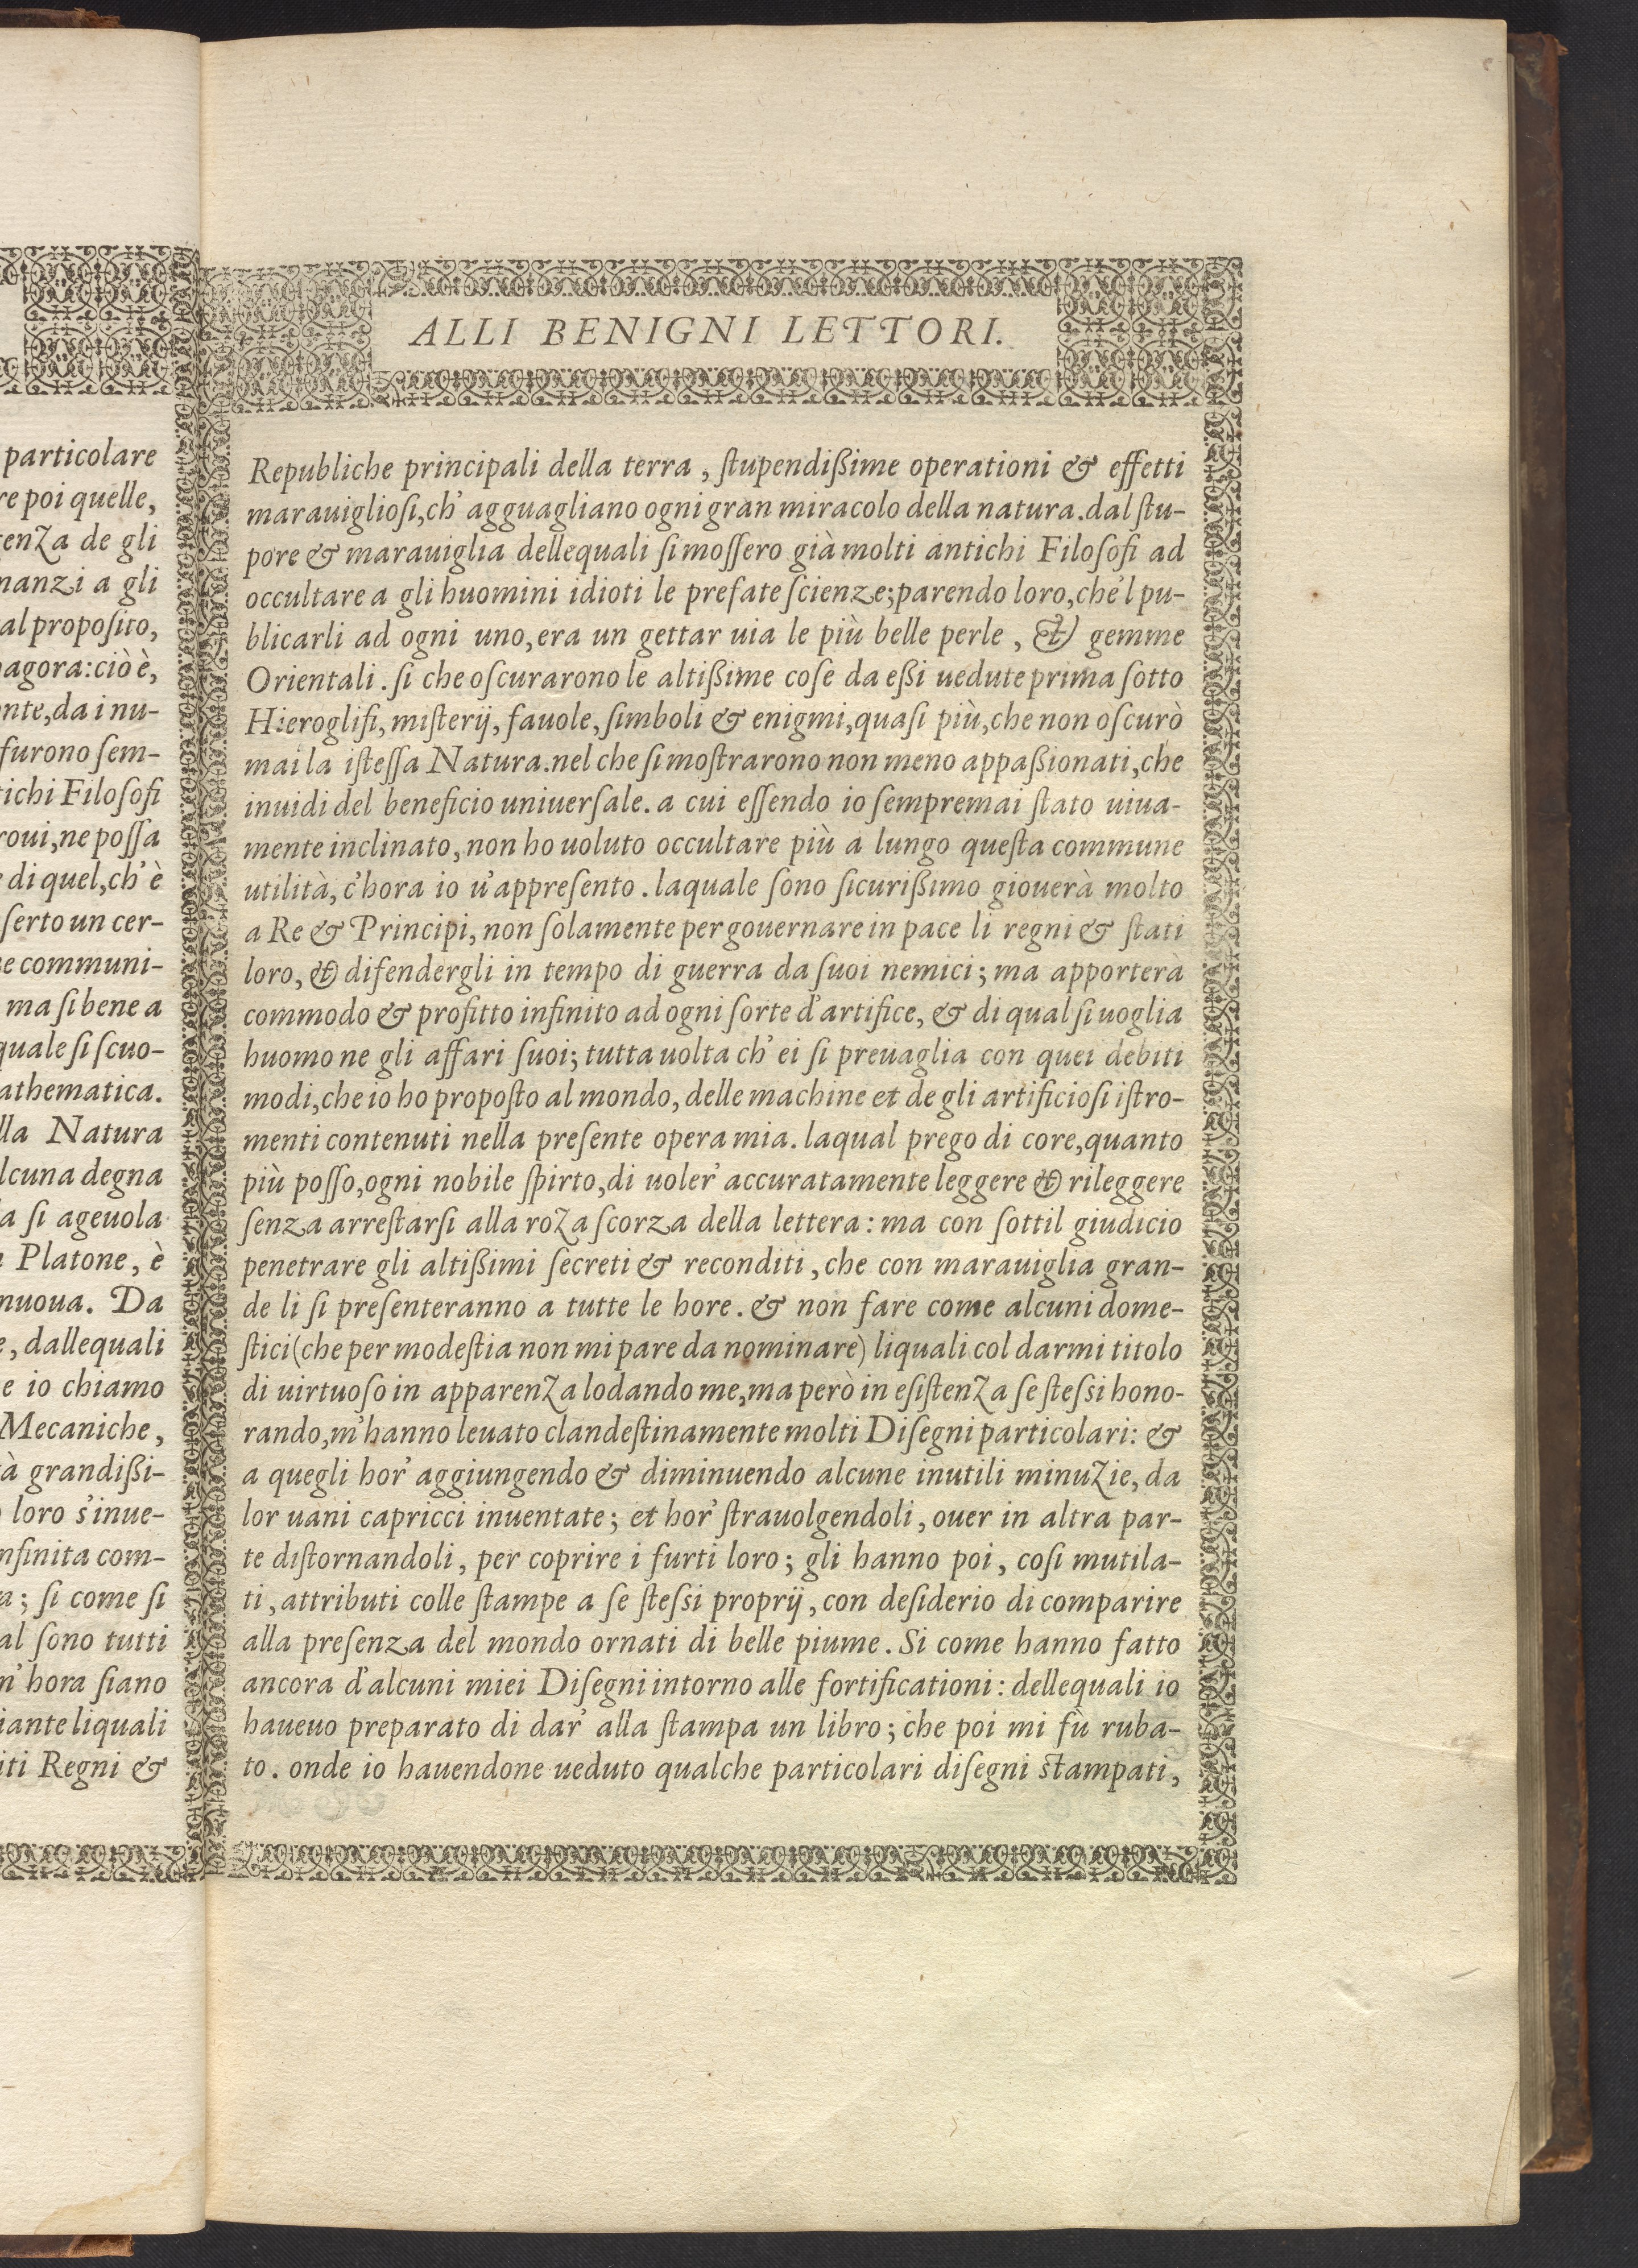 particolare
re poi quelle,
enza de gli
nanzi a gli
al propoſito,
agora: ciò è,
nte, da i nu-
furono ſem-
tichi Filoſofi
roui, ne poſſa
e di quel, ch' è
ſerto un cer-
communi-
ma ſi bene a
quale ſi ſcuo-
athematica.
lla Natura
lcuna degna
a ſi ageuola
Platone, è
nuoua. Da
e, dallequali
e io chiamo
Mecaniche,
à grandißi-
loro s'inue-
nfinita com-
a; ſi come ſi
al ſono tutti
m' hora ſiano
iante liquali
iti Regni &
ALLI BENIGNI LETTORI.
Republiche principali della terra, ſtupendißime operationi & effetti
marauiglioſi, ch' agguagliano ogni gran miracolo della natura. dal ſtu-
pore & marauiglia dellequali ſi moſſero già molti antichi Filoſofi ad
occultare a gli huomini idioti le prefate ſcienze; parendo loro, che'l pu-
blicarli ad ogni uno, era un gettar uia le più belle perle, & gemme
Orientali. ſi che oſcurarono le altißime coſe da eßi uedute prima ſotto
Hieroglifi, miſterij, fauole, ſimboli & enigmi, quaſi più, che non oſcurò
mai la iſteſſa Natura. nel che ſi moſtrarono non meno appaßionati, che
inuidi del beneficio uniuerſale. a cui eſſendo io ſempremai ſtato uiua-
mente inclinato, non ho uoluto occultare più a lungo queſta commune
utilità, c'hora io u'appreſento. laquale ſono ſicurißimo giouerà molto
a Re & Principi, non ſolamente per gouernare in pace li regni & ſtati
loro, & difendergli in tempo di guerra da ſuoi nemici; ma apporterà
commodo & profitto infinito ad ogni ſorte d'artifice, & di qual ſi uoglia
huomo ne gli affari ſuoi; tutta uolta ch' ei ſi preuaglia con quei debiti
modi, che io ho propoſto al mondo, delle machine et de gli artificioſi iſtro-
menti contenuti nella preſente opera mia. laqual prego di core, quanto
più poſſo, ogni nobile ſpirto, di uoler' accuratamente leggere & rileggere
ſenza arreſtarſi alla roza ſcorza della lettera: ma con ſottil giudicio
penetrare gli altißimi ſecreti & reconditi, che con marauiglia gran-
de li ſi preſenteranno a tutte le hore. & non fare come alcuni dome-
ſtici (che per modeſtia non mi pare da nominare) liquali col darmi titolo
di uirtuoſo in apparenza lodando me, ma però in eſiſtenza ſe ſteſsi hono-
rando, m'hanno leuato clandeſtinamente molti Diſegni particolari: &
a quegli hor' aggiungendo & diminuendo alcune inutili minuzie, da
lor uani capricci inuentate; et hor' ſtrauolgendoli, ouer in altra par-
te diſtornandoli, per coprire i furti loro; gli hanno poi, coſi mutila-
ti, attributi colle ſtampe a ſe ſteſsi proprij, con deſiderio di comparire
alla preſenza del mondo ornati di belle piume. Si come hanno fatto
ancora d'alcuni miei Diſegni intorno alle fortificationi: dellequali io
haueuo preparato di dar' alla ſtampa un libro; che poi mi fù ruba-
to. onde io hauendone ueduto qualche particolari diſegni ſtampati,